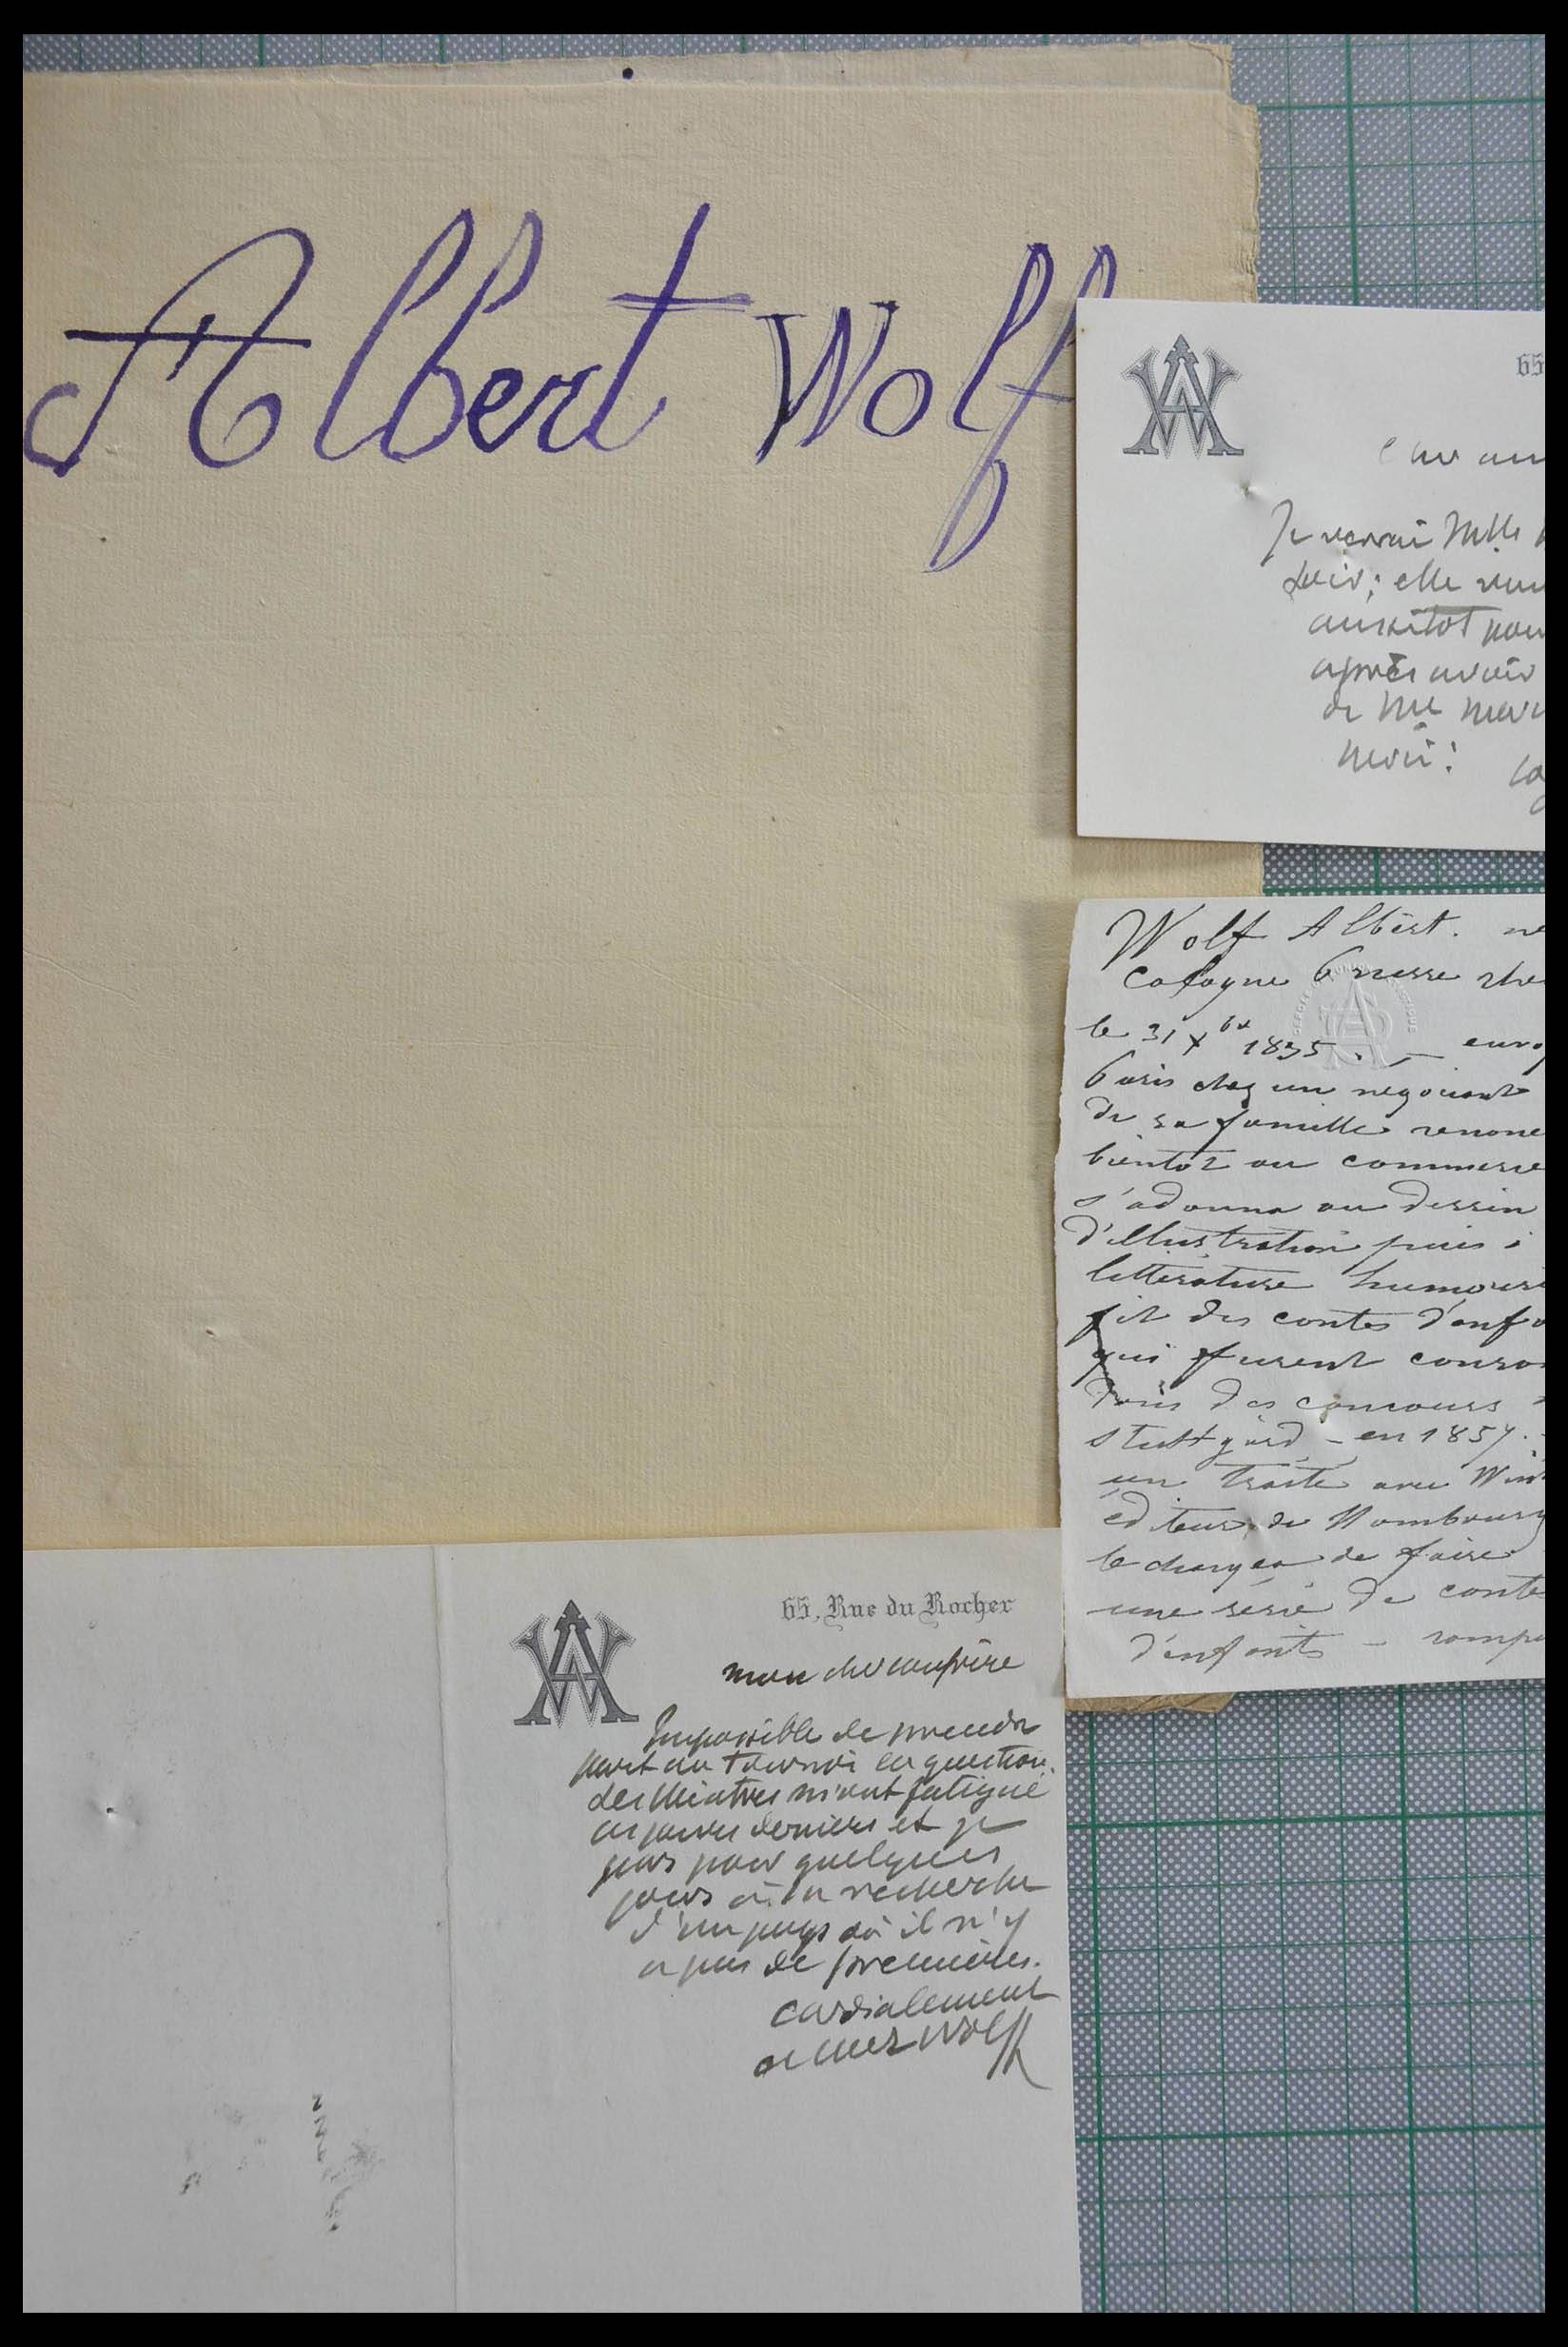 Albert Wolff
65
Je verrai Mlle
soir; elle
aussitôt pour
après avoir
de Mme
merci!
Wolf Albert. né
Cologne Prusse rhé
le 31 Xbre 1835. — envo
Paris chez un négociant
de sa famille renonc
bientot au commerce
s'adonna au dessin
d'illustration puis à
littérature humouris
fit des contes d'enfa
qui furent couron
dans des concours
Stuttgard – en 1857.
un traité avec
éditeur de Hambourg
le chargea de faire
une série de conte
d'enfants – romp
65, Rue du Rocher
mon cher confrère
Impossible de prendre
part au tournoi la question
des théatres m'ont fatigué
ces jours derniers et je
pars pour quelques
jours à la recherche
d'un pays où il n'y
a pas de premières.
cordialement
Albert Wolff